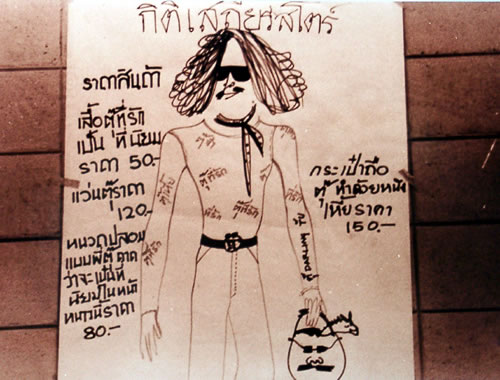 กิติเสถียรสโตร์
ราคาสินค้า
เสื้อตุ๊ที่รัก
เป็น ที่นิยม
ราคา 50.-
แว่นตุ๊ราคา
120.-
หนวดปลอม
แบบพี่ตุ๊ คาด
ว่าจะเป็นที่
นิยมในหน้า
หนาวนี้ราคา
80.-
กระเป๋าถือ
ตุ๊ ทำด้วยหนัง
เหี้ย ราคา
150.-
ตุ๊ที่รัก
ตุ๊ที่รัก
ตุ๊ที่รัก